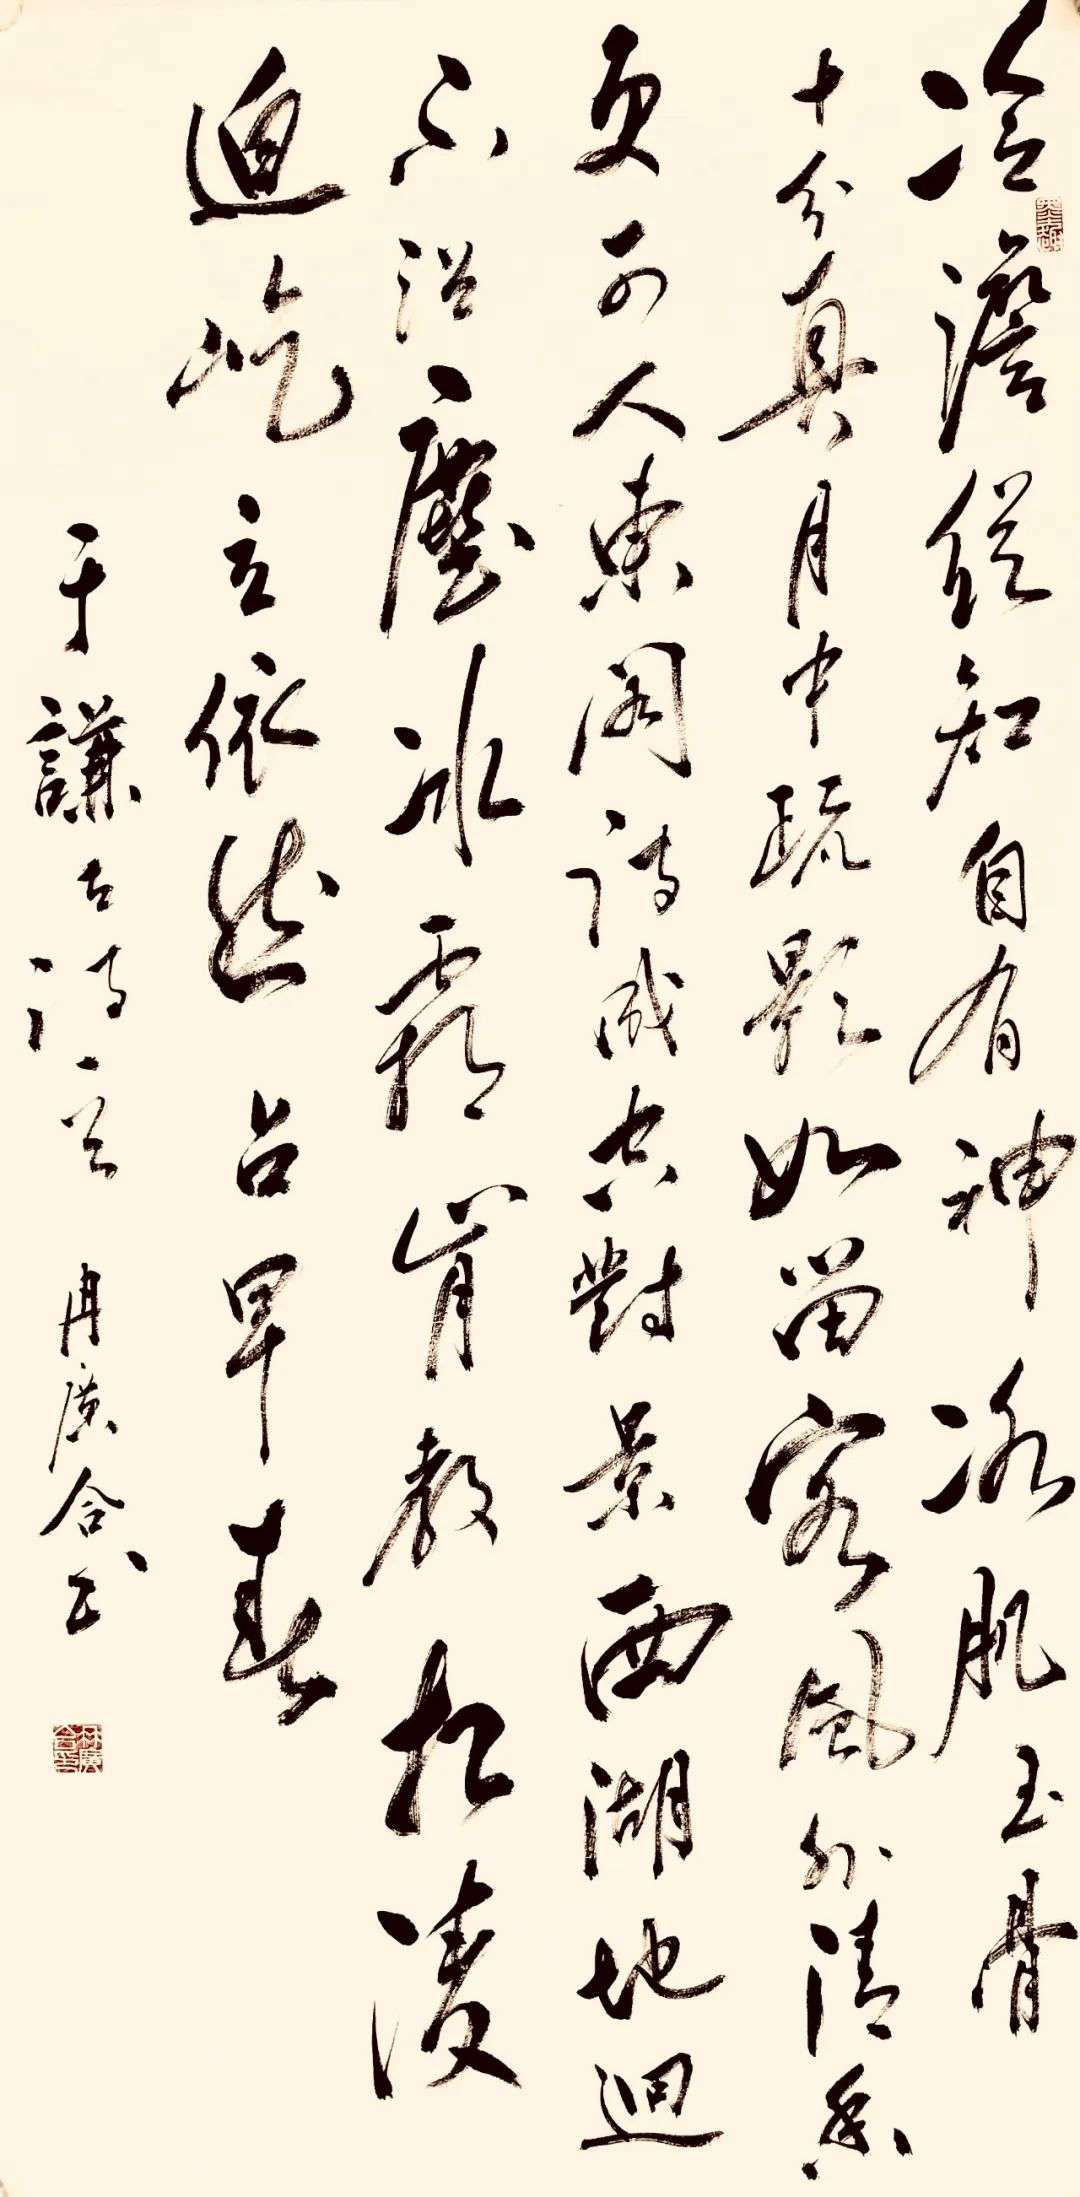 冷澹從知自有神冰肌玉骨
十分真月中疏影如留客風外清香
更可人東閣詩成空對景西湖地迥
不沾塵冰霜肯教相凌
迫屹立依然占早春
于謙古詩一首 冉廣合書